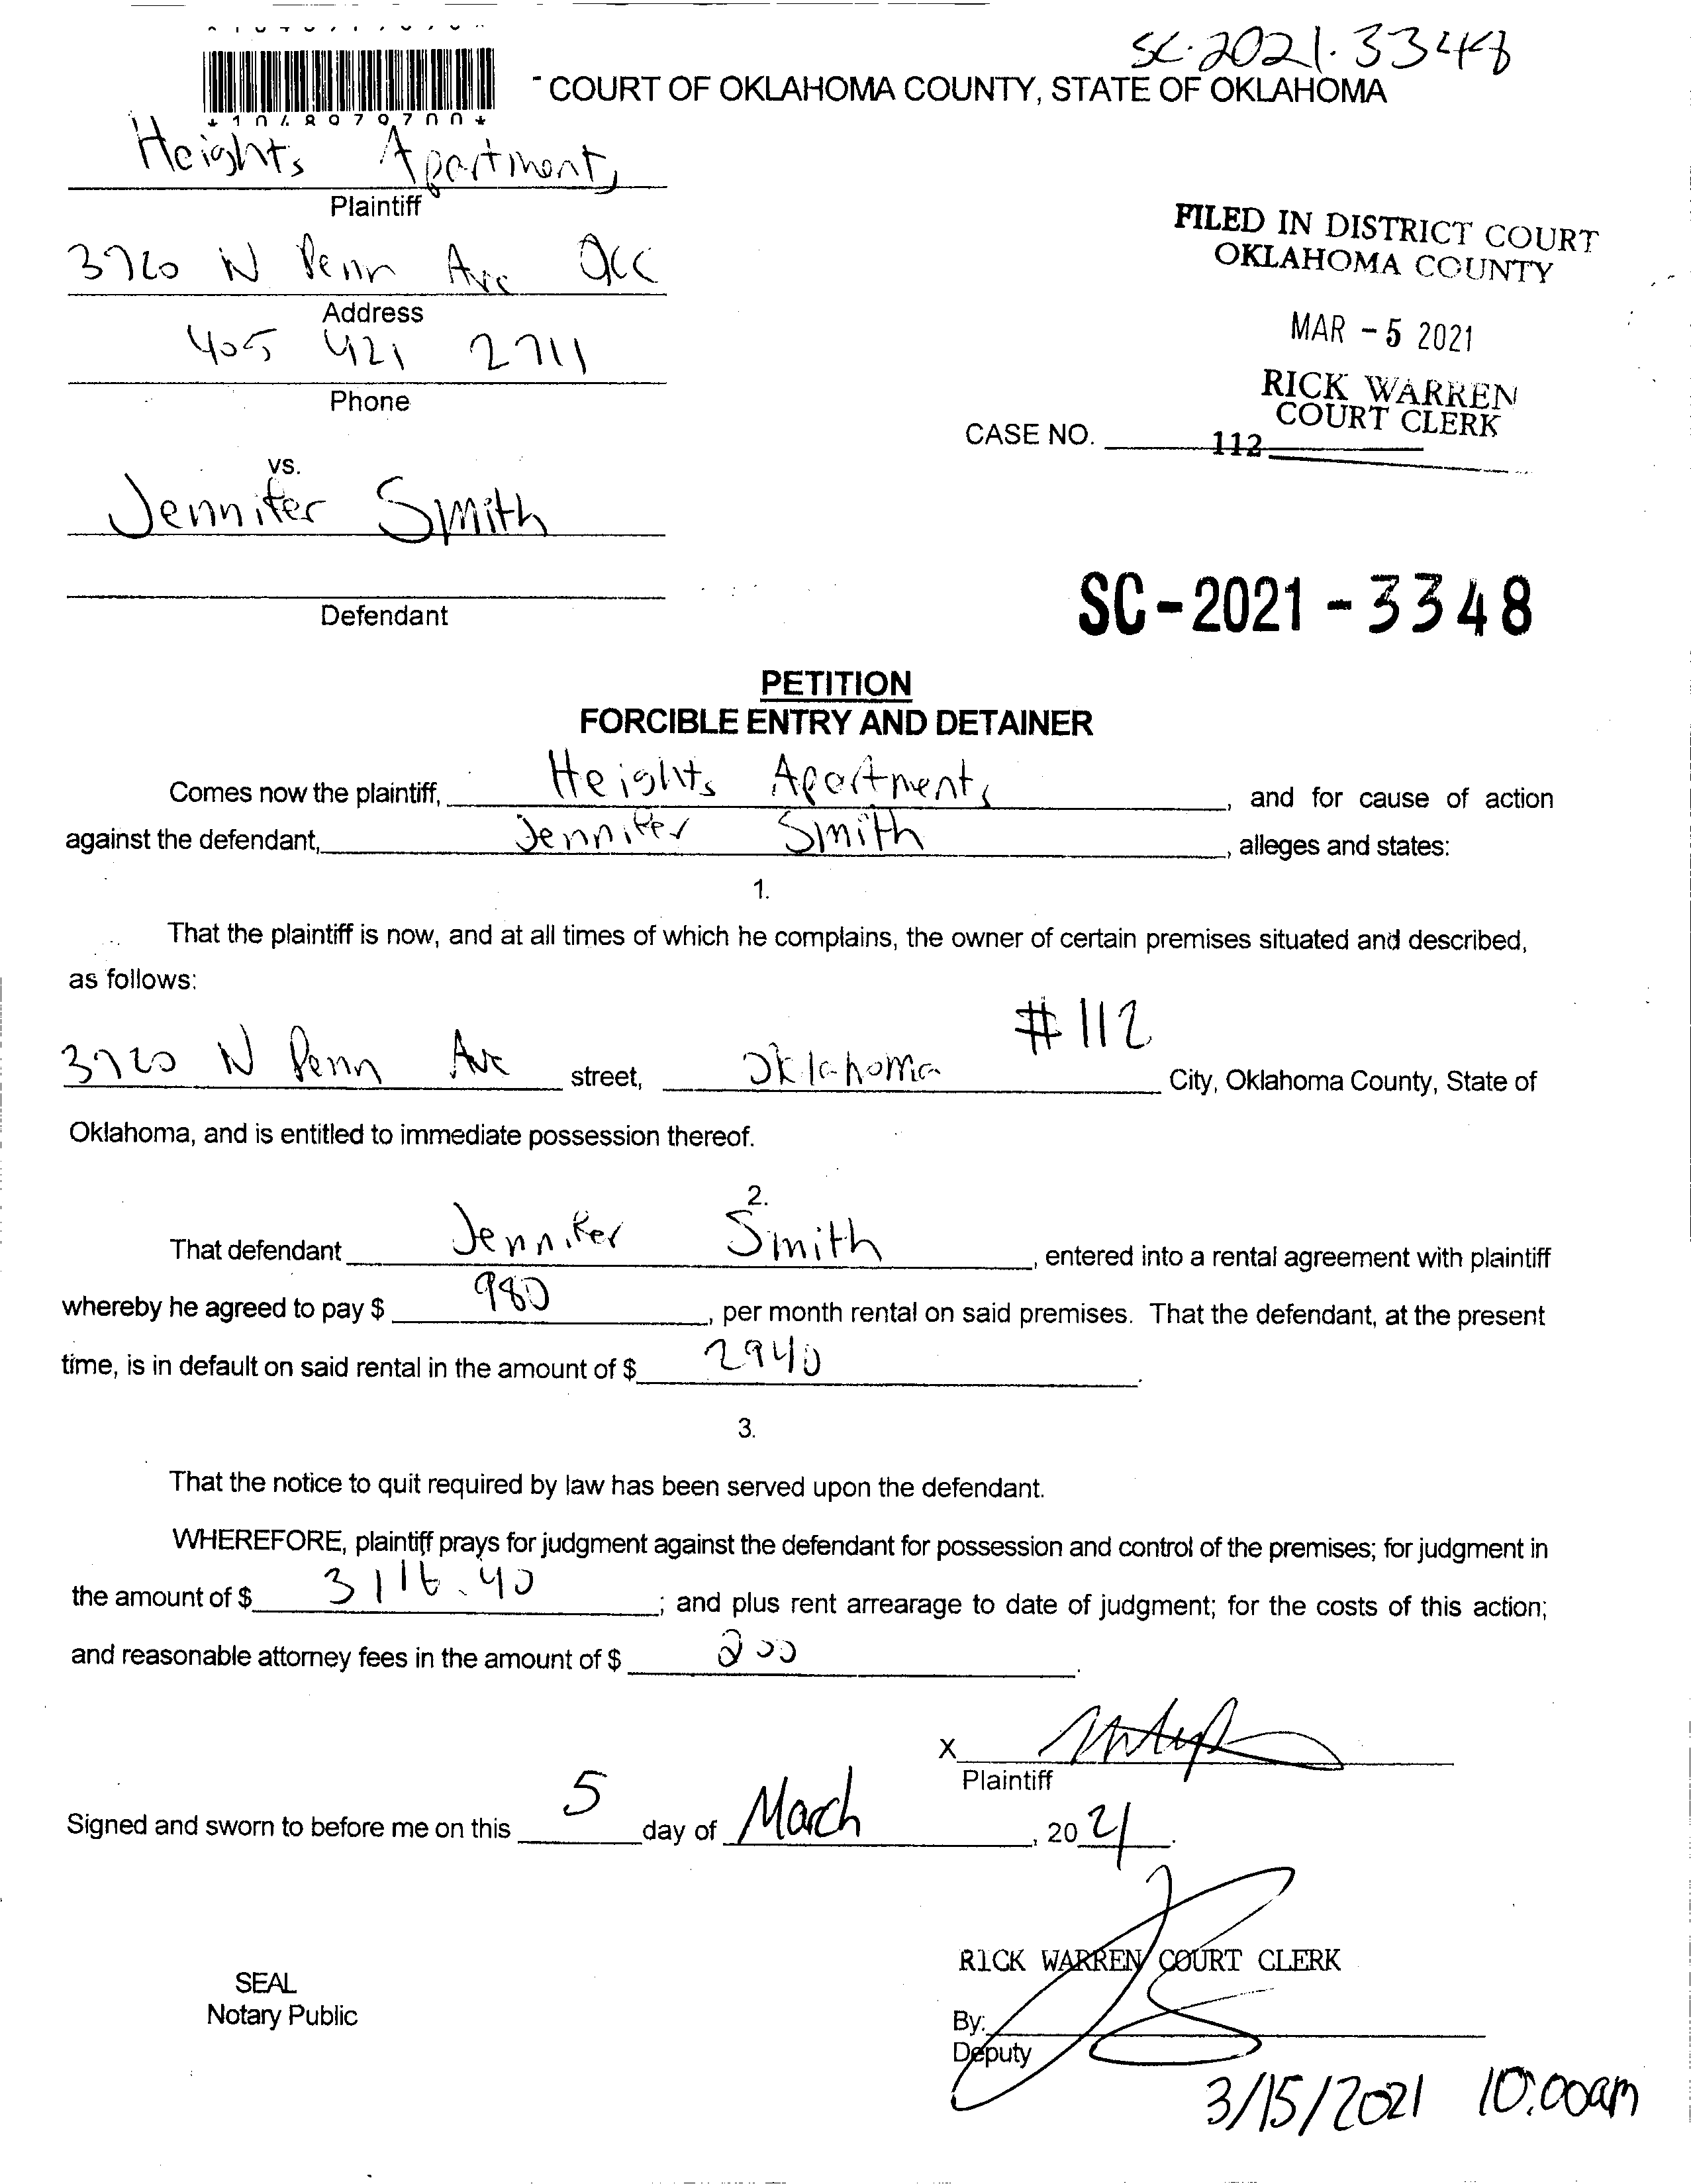 SC-2021-3348
COURT OF OKLAHOMA COUNTY, STATE OF OKLAHOMA
Heights Apartments
Plaintiff
3720 N Penn Ave OKC
Address
405 421 2711
Phone
FILED IN DISTRICT COURT
OKLAHOMA COUNTY
MAR - 5 2021
RICK WARREN
COURT CLERK
CASE NO.
112
vs.
Jennifer Smith
Defendant
SC-2021-3348
PETITION
FORCIBLE ENTRY AND DETAINER
Comes now the plaintiff, Heights Apartments, and for cause of action
against the defendant, Jennifer Smith, alleges and states:
1.
That the plaintiff is now, and at all times of which he complains, the owner of certain premises situated and described,
as follows:
#112
3720 N Penn Ave street, Oklahoma City, Oklahoma County, State of
Oklahoma, and is entitled to immediate possession thereof.
2.
That defendant Jennifer Smith, entered into a rental agreement with plaintiff
whereby he agreed to pay $ 980, per month rental on said premises. That the defendant, at the present
time, is in default on said rental in the amount of $ 2940.
3.
That the notice to quit required by law has been served upon the defendant.
WHEREFORE, plaintiff prays for judgment against the defendant for possession and control of the premises; for judgment in
the amount of $ 3116.40; and plus rent arrearage to date of judgment; for the costs of this action;
and reasonable attorney fees in the amount of $ 200.
X
Plaintiff
Signed and sworn to before me on this 5 day of March, 2021.
RICK WARREN COURT CLERK
SEAL
Notary Public
By:
Deputy
3/15/2021 10:00am